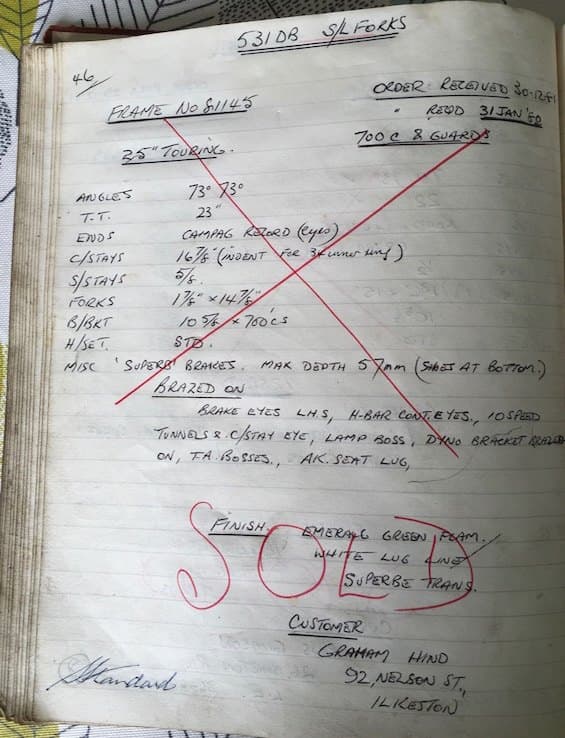 531DB S/L FORKS
46/
ORDER RECEIVED 30-12-81
FRAME NO S1145
" REQD 31 JAN
700C & GUARDS
25" TOURING.
ANGLES 73° 73°
T.T. 23"
ENDS CAMPAG RECORD (eyes)
C/STAYS 16⅞" (INDENT FOR 34 inner ring)
S/STAYS 5/8.
FORKS 1⅞" × 14⅞"
B/BKT 10 5/8 × 700'CS
H/SET. STD.
MISC 'SUPERB' BRAKES. MAX DEPTH 57mm (SHOES AT BOTTOM.)
BRAZED ON
BRAKE EYES L.H.S, H-BAR CONT. EYES., 10 SPEED
TUNNELS & C/STAY EYE, LAMP BOSS, DYNO BRACKET BRAZED
ON, T.A. BOSSES., A.K. SEAT LUG,
SOLD
FINISH. EMERALD GREEN FLAM.
WHITE LUG LINE
SUPERBE TRANS.
CUSTOMER
GRAHAM HIND
92, NELSON ST.,
ILKESTON
Standard